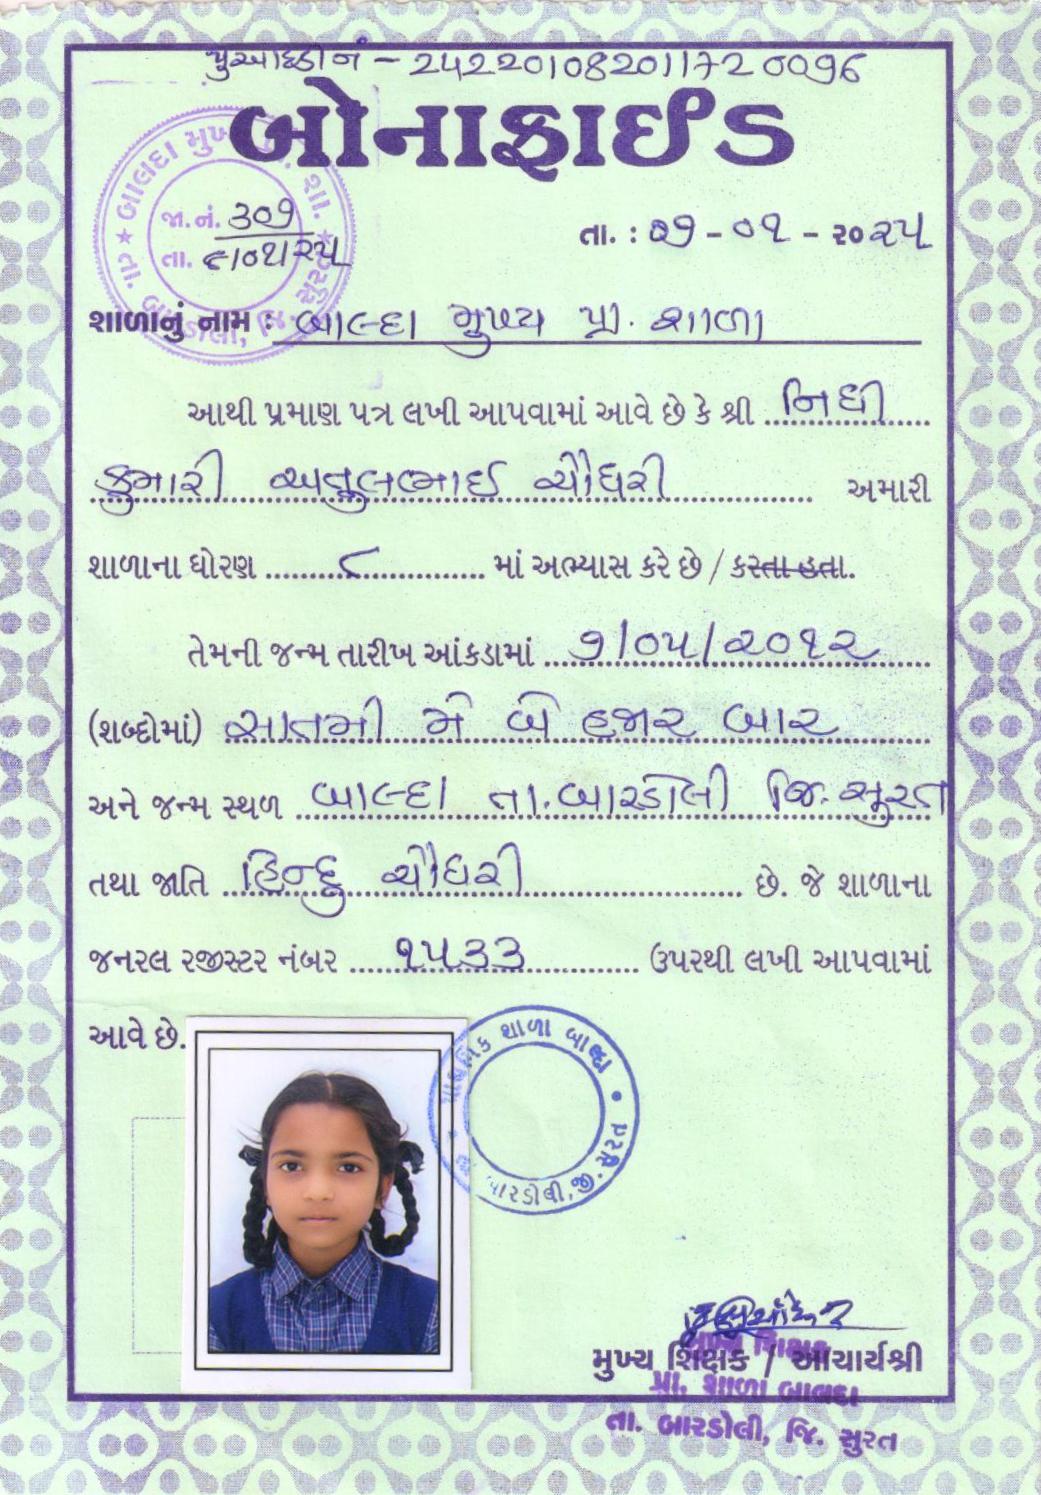 યુઆઇડી નં - 242201082011720096
બોનાફાઈડ
બાલદા મુખ્ય પ્રા. શા.
જા.નં. ૩૦૭
તા. ૯/૦૧/૨૫
તા. બારડોલી, જિ. સુરત
તા. : ૦૭ - ૦૧ - ૨૦૨૫
શાળાનું નામ : બાલ્દા મુખ્ય પ્રા. શાળા
આથી પ્રમાણ પત્ર લખી આપવામાં આવે છે કે શ્રી નિધી
કુમારી અતુલભાઈ ચૌધરી અમારી
શાળાના ધોરણ ૮ માં અભ્યાસ કરે છે / કરતા હતા.
તેમની જન્મ તારીખ આંકડામાં ૭/૦૫/૨૦૧૨
(શબ્દોમાં) સાતમી મે બે હજાર બાર
અને જન્મ સ્થળ બાલ્દા તા. બારડોલી જિ. સુરત
તથા જાતિ હિન્દુ ચૌધરી છે. જે શાળાના
જનરલ રજીસ્ટર નંબર ૧૫૩૩ ઉપરથી લખી આપવામાં
આવે છે.
શાળા બાલ્દા • બારડોલી, જી. સુરત
મુખ્ય શિક્ષક / આચાર્યશ્રી
પ્રા. શાળા બાલદા
તા. બારડોલી, જિ. સુરત